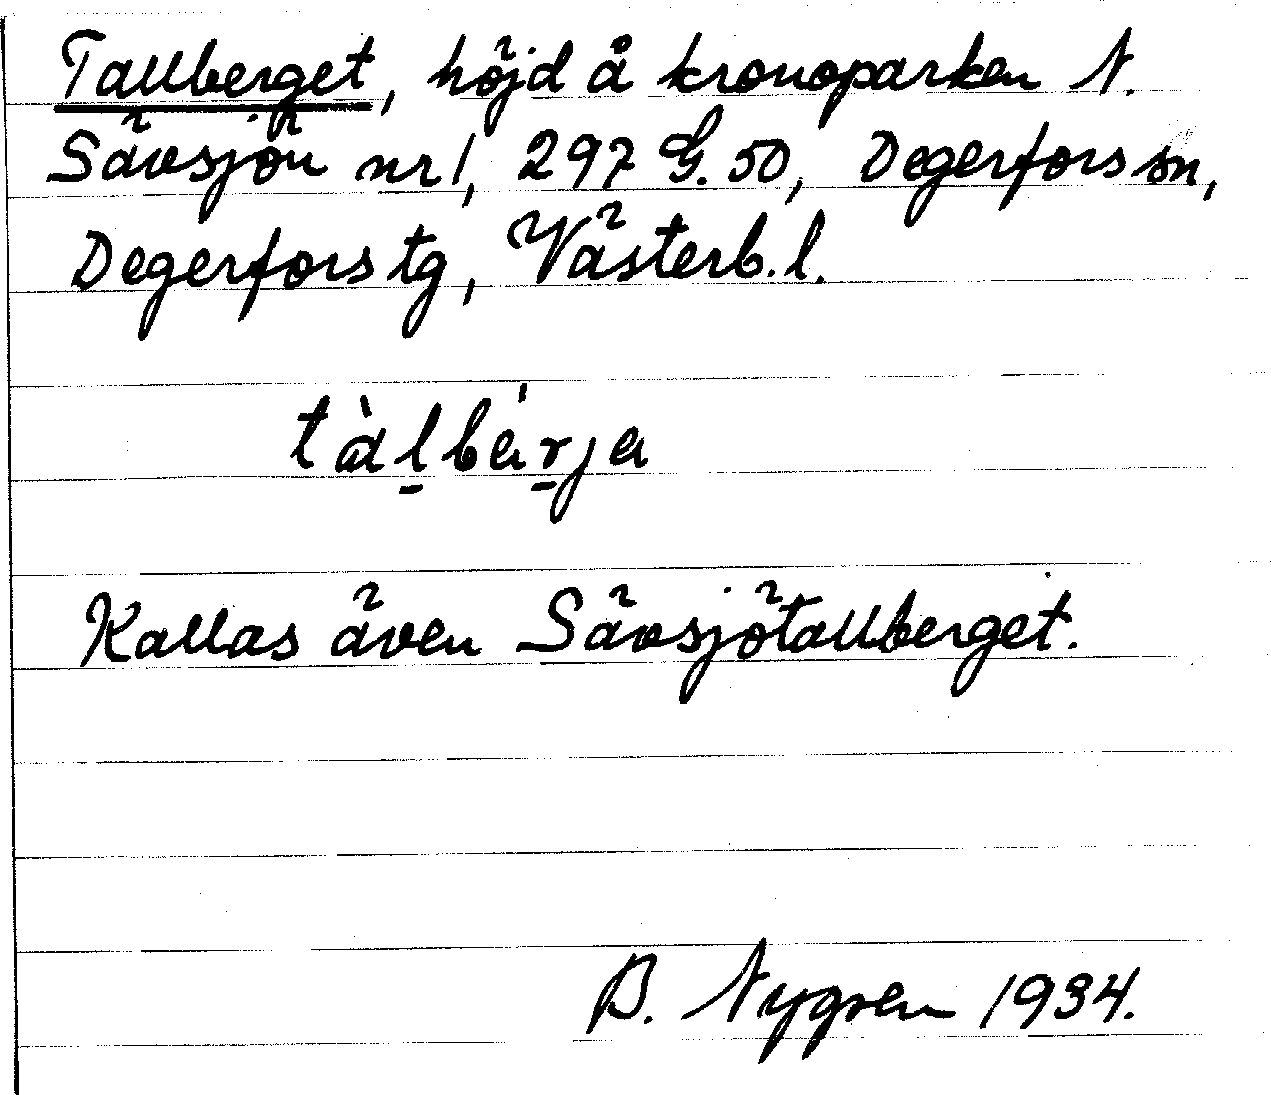 Tallberget, höjd å kronoparken N.
Sävsjön nr 1, 297 G. 50, Degerfors sn,
Degerfors tg, Västerb. l.
tàlbárja
Kallas även Sävsjötallberget.
B. Nygren 1934.